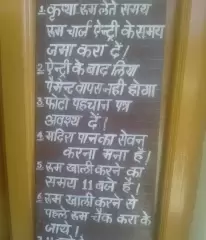 1. कृप्या रूम लेते समय
रूम चार्ज ऐन्ट्री के समय
जमा करा दें!
2. ऐन्ट्री के बाद लिया
पैमेन्ट वापस नही होगा
3. फोटो पहचान पत्र
अवश्य दें!
4. मदिरा पान का सेवन
करना मना है!
5. रूम खाली करने का
समय 11 बजे है!
6. रूम खाली करने से
पहले रूम चैक करा के
जाये!